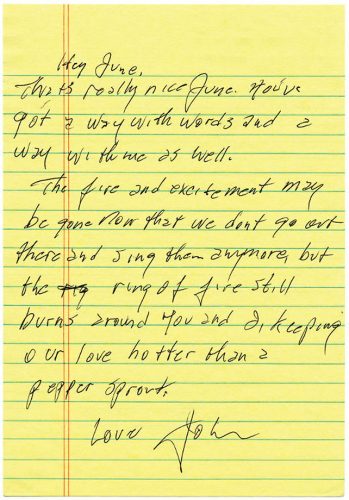 Hey June,
Thats really nice June. You've
got a way with words and a
way with me as well.
The fire and excitement may
be gone now that we dont go out
there and sing them anymore, but
the ring of fire still
burns around you and I, keeping
our love hotter than a
pepper sprout.
Love John